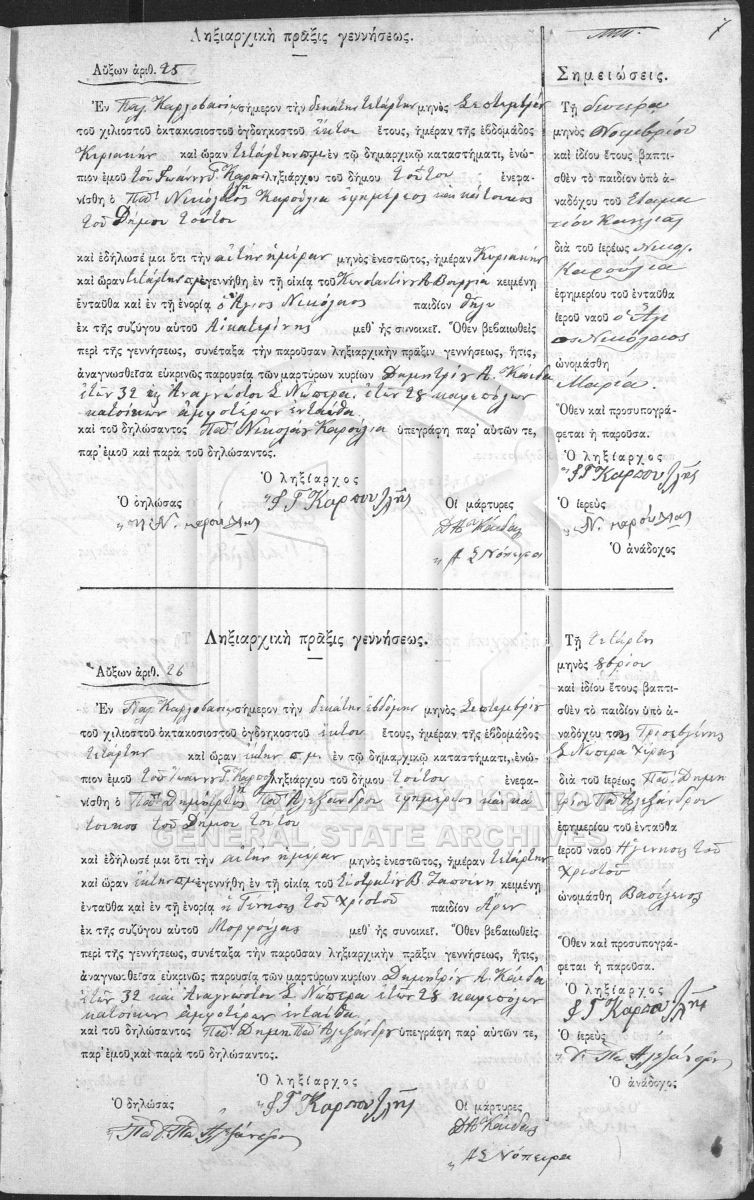 7
Ληξιαρχικὴ πρᾶξις γεννήσεως.
Αὔξων ἀριθ. 25
Ἐν Παλ. Καρλοβασίῳ σήμερον τὴν δεκάτην τετάρτην μηνὸς Σεπτεμβρίου
τοῦ χιλιοστοῦ ὀκτακοσιοστοῦ ὀγδοηκοστοῦ ἕκτου ἔτους, ἡμέραν τῆς ἑβδομάδος
Κυριακὴν καὶ ὥραν τετάρτην π.μ. ἐν τῷ δημαρχικῷ καταστήματι, ἐνώ-
πιον ἐμοῦ τοῦ Ἰωάννου Γ. ληξιάρχου τοῦ δήμου τούτου ἐνεφα-
νίσθη ὁ Παπ Νικόλαος Καρούλια ἐφημέριος καὶ κάτοικος
τοῦ Δήμου τούτου
καὶ ἐδήλωσέ μοι ὅτι τὴν αὐτὴν ἡμέραν μηνὸς ἐνεστῶτος, ἡμέραν Κυριακὴν
καὶ ὥραν τετάρτην π.μ. ἐγεννήθη ἐν τῇ οἰκίᾳ τοῦ Κωνσταντίνου κειμένῃ
ἐνταῦθα καὶ ἐν τῇ ἐνορίᾳ ὁ Ἅγιος Νικόλαος παιδίον θῆλυ
ἐκ τῆς συζύγου αὐτοῦ Αἰκατερίνης μεθ᾽ ἧς συνοικεῖ. Ὅθεν βεβαιωθεὶς
περὶ τῆς γεννήσεως, συνέταξα τὴν παροῦσαν ληξιαρχικὴν πρᾶξιν γεννήσεως, ἥτις,
ἀναγνωσθεῖσα εὐκρινῶς παρουσίᾳ τῶν μαρτύρων κυρίων Δημητρίου Α. Κάιδα
ἐτῶν 32 κ Ἀναγνώστου Σ. Νόπερα ἐτῶν 28
κατοίκων ἀμφοτέρων ἐνταῦθα
καὶ τοῦ δηλώσαντος Παπ Νικολάου Καρούλια ὑπεγράφη παρ᾽ αὐτῶν τε,
παρ᾽ ἐμοῦ καὶ παρὰ τοῦ δηλώσαντος.
Ὁ ληξίαρχος
Ὁ δηλώσας
Οἱ μάρτυρες
Σημειώσεις.
Τῇ δευτέρᾳ
μηνὸς Νοεμβρίου
καὶ ἰδίου ἔτους βαπτι-
σθὲν τὸ παιδίον ὑπὸ ἀ-
ναδόχου τοῦ
διὰ τοῦ ἱερέως Νικολ.
Καρούλια
ἐφημερίου τοῦ ἐνταῦθα
ἱεροῦ ναοῦ ὁ Ἅγι
ος Νικόλαος
ὠνομάσθη
Μαρία.
Ὅθεν καὶ προσυπογρά-
φεται ἡ παροῦσα.
Ὁ ληξίαρχος
Ὁ ἱερεὺς
Ν. καρούλιας
Ὁ ἀνάδοχος
Ληξιαρχικὴ πρᾶξις γεννήσεως.
Αὔξων ἀριθ. 26
Ἐν Παλ. Καρλοβασίῳ σήμερον τὴν δεκάτην ἑβδόμην μηνὸς Σεπτεμβρίου
τοῦ χιλιοστοῦ ὀκτακοσιοστοῦ ὀγδοηκοστοῦ ἕκτου ἔτους, ἡμέραν τῆς ἑβδομάδος
τετάρτην καὶ ὥραν ἕκτην π.μ. ἐν τῷ δημαρχικῷ καταστήματι, ἐνώ-
πιον ἐμοῦ τοῦ Ἰωάννου Γ. ληξιάρχου τοῦ δήμου τούτου ἐνεφα-
νίσθη ὁ Παπ Δημήτριος Παπ Ἀλεξάνδρου ἐφημέριος καὶ κά
τοικος τοῦ Δήμου τούτου
καὶ ἐδήλωσέ μοι ὅτι τὴν αὐτὴν ἡμέραν μηνὸς ἐνεστῶτος, ἡμέραν τετάρτην
καὶ ὥραν ἕκτην π.μ. ἐγεννήθη ἐν τῇ οἰκίᾳ τοῦ Εὐστρατίου Β. κειμένῃ
ἐνταῦθα καὶ ἐν τῇ ἐνορίᾳ ἡ Γέννησις τοῦ Χριστοῦ παιδίον ἄρεν
ἐκ τῆς συζύγου αὐτοῦ Μορφούλας μεθ᾽ ἧς συνοικεῖ. Ὅθεν βεβαιωθεὶς
περὶ τῆς γεννήσεως, συνέταξα τὴν παροῦσαν ληξιαρχικὴν πρᾶξιν γεννήσεως, ἥτις,
ἀναγνωσθεῖσα εὐκρινῶς παρουσίᾳ τῶν μαρτύρων κυρίων Δημητρίου Α. Κάιδα
ἐτῶν 32 καὶ Ἀναγνώστου Σ. Νόπερα ἐτῶν 28
κατοίκων ἀμφοτέρων ἐνταῦθα
καὶ τοῦ δηλώσαντος Παπ Δημη Παπ Ἀλεξάνδρου ὑπεγράφη παρ᾽ αὐτῶν τε,
παρ᾽ ἐμοῦ καὶ παρὰ τοῦ δηλώσαντος.
Ὁ ληξίαρχος
Ὁ δηλώσας
Οἱ μάρτυρες
Α Σ Νόπειρα
Τῇ τετάρτῃ
μηνὸς 8βρίου
καὶ ἰδίου ἔτους βαπτι-
σθὲν τὸ παιδίον ὑπὸ ἀ-
ναδόχου τῆς
διὰ τοῦ ἱερέως Παπ Δημη
τρίου Πα Ἀλεξάνδρου
ἐφημερίου τοῦ ἐνταῦθα
ἱεροῦ ναοῦ Ἡ Γέννησις τοῦ
Χριστοῦ
ὠνομάσθη Βασίλειος
Ὅθεν καὶ προσυπογρά-
φεται ἡ παροῦσα.
Ὁ ληξίαρχος
Ὁ ἱερεὺς
Ὁ ἀνάδοχος
ΓΕΝΙΚΑ ΑΡΧΕΙΑ ΤΟΥ ΚΡΑΤΟΥΣ
GENERAL STATE ARCHIVES